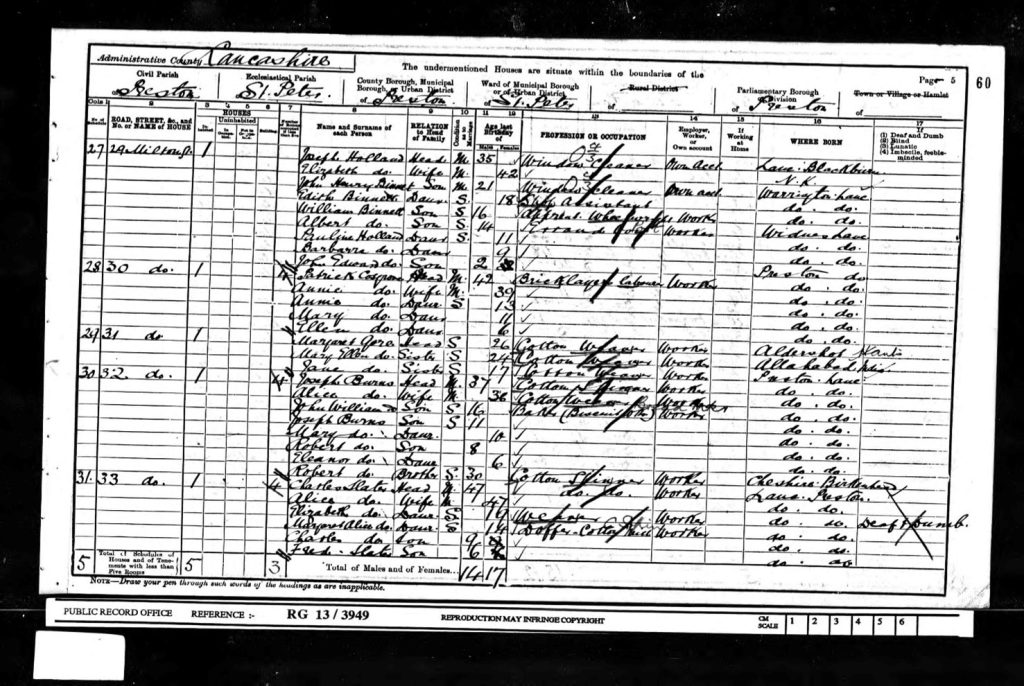 Administrative County Lancashire
The undermentioned Houses are situate within the boundaries of the
Page 5
60
Civil Parish
of Preston
Ecclesiastical Parish
of St. Peter
County Borough, Municipal Borough, or Urban District
of Preston
Ward of Municipal Borough or of Urban District
of St. Peter
Rural District
of
Parliamentary Borough or Division
of Preston
Town or Village or Hamlet
of
Cols. 1 2 3 4 5 6 7 8 9 10 11 12 13 14 15 16 17
No. of Schedule
ROAD, STREET, &c., and No. or NAME of HOUSE
HOUSES
Uninhabited
Building
Name and Surname of each Person
RELATION to Head of Family
Condition as to Marriage
Age last Birthday of
Males Females
PROFESSION OR OCCUPATION
Employer, Worker, or Own account
If Working at Home
WHERE BORN
(1) Deaf and Dumb
(2) Blind
(3) Lunatic
(4) Imbecile, feeble-minded
27 29 Milton St. 1 Joseph Holland Head M. 35 Window Cleaner Own Acct. Lanc. Blackburn
Elizabeth do. Wife M. 42 N.K.
John Henry Binnett Son M. 21 Window Cleaner Own acct. Warrington Lanc
Edith Binnett Daur S. 18 Assistant do. do.
William Binnett Son S 16 Worker do. do.
Albert do. Son S. 14 Errand Boy Worker Widnes Lanc
Pauline Holland Daur S. 11 do. do.
Barbarra do. Daur 9 do. do.
John Edward do. Son 2 Preston do
28 30 do. 1 4 Patrick Cosgrove Head M. 42 Bricklayers labourer Worker do. do.
Annie do. Wife M. 39 do. do.
Annie do. Daur S 13 do. do.
Mary do. Daur 11 do. do.
Ellen do. Daur 6 do. do.
29 31 do. 1 Margaret Gore Head S 26 Cotton Weaver Worker Aldershot Hants
Mary Ellen do. Sister S 24 Cotton Weaver Worker Allahabad India
Jane do. Sister S 17 Cotton Weaver Worker Preston Lanc
30 32 do. 1 4 Joseph Burns Head M. 37 Cotton Worker do. do.
Alice do. Wife M. 36 Cotton Weaver Worker do. do.
John William do Son S 16 Worker do. do.
Joseph Burns Son S 11 do. do.
Mary do. Daur. 10 do. do.
Robert do. Son 8 do. do.
Eleanor do. Daur 6 do. do.
Robert do. Brother S. 30 Cotton Spinner Worker Cheshire Birkenhead
31 33 do. 1 4 Charles Slater Head M. 47 do. do. Worker Lanc. Preston.
Alice do. Wife M. 47 do. do.
Elizabeth do. Daur S 19 Weaver Worker do. do. Deaf & Dumb.
Margaret Alice do. Daur S 14 Doffer Cotton Mill Worker do. do.
Charles do Son 9 do. do.
Fred. Slater Son 6 do. do.
5 Total of Schedules of Houses and of Tenements with less than Five Rooms 5 3 Total of Males and of Females... 14 17
NOTE—Draw your pen through such words of the headings as are inapplicable.
PUBLIC RECORD OFFICE REFERENCE :- RG 13/3949 REPRODUCTION MAY INFRINGE COPYRIGHT CM SCALE 1 2 3 4 5 6